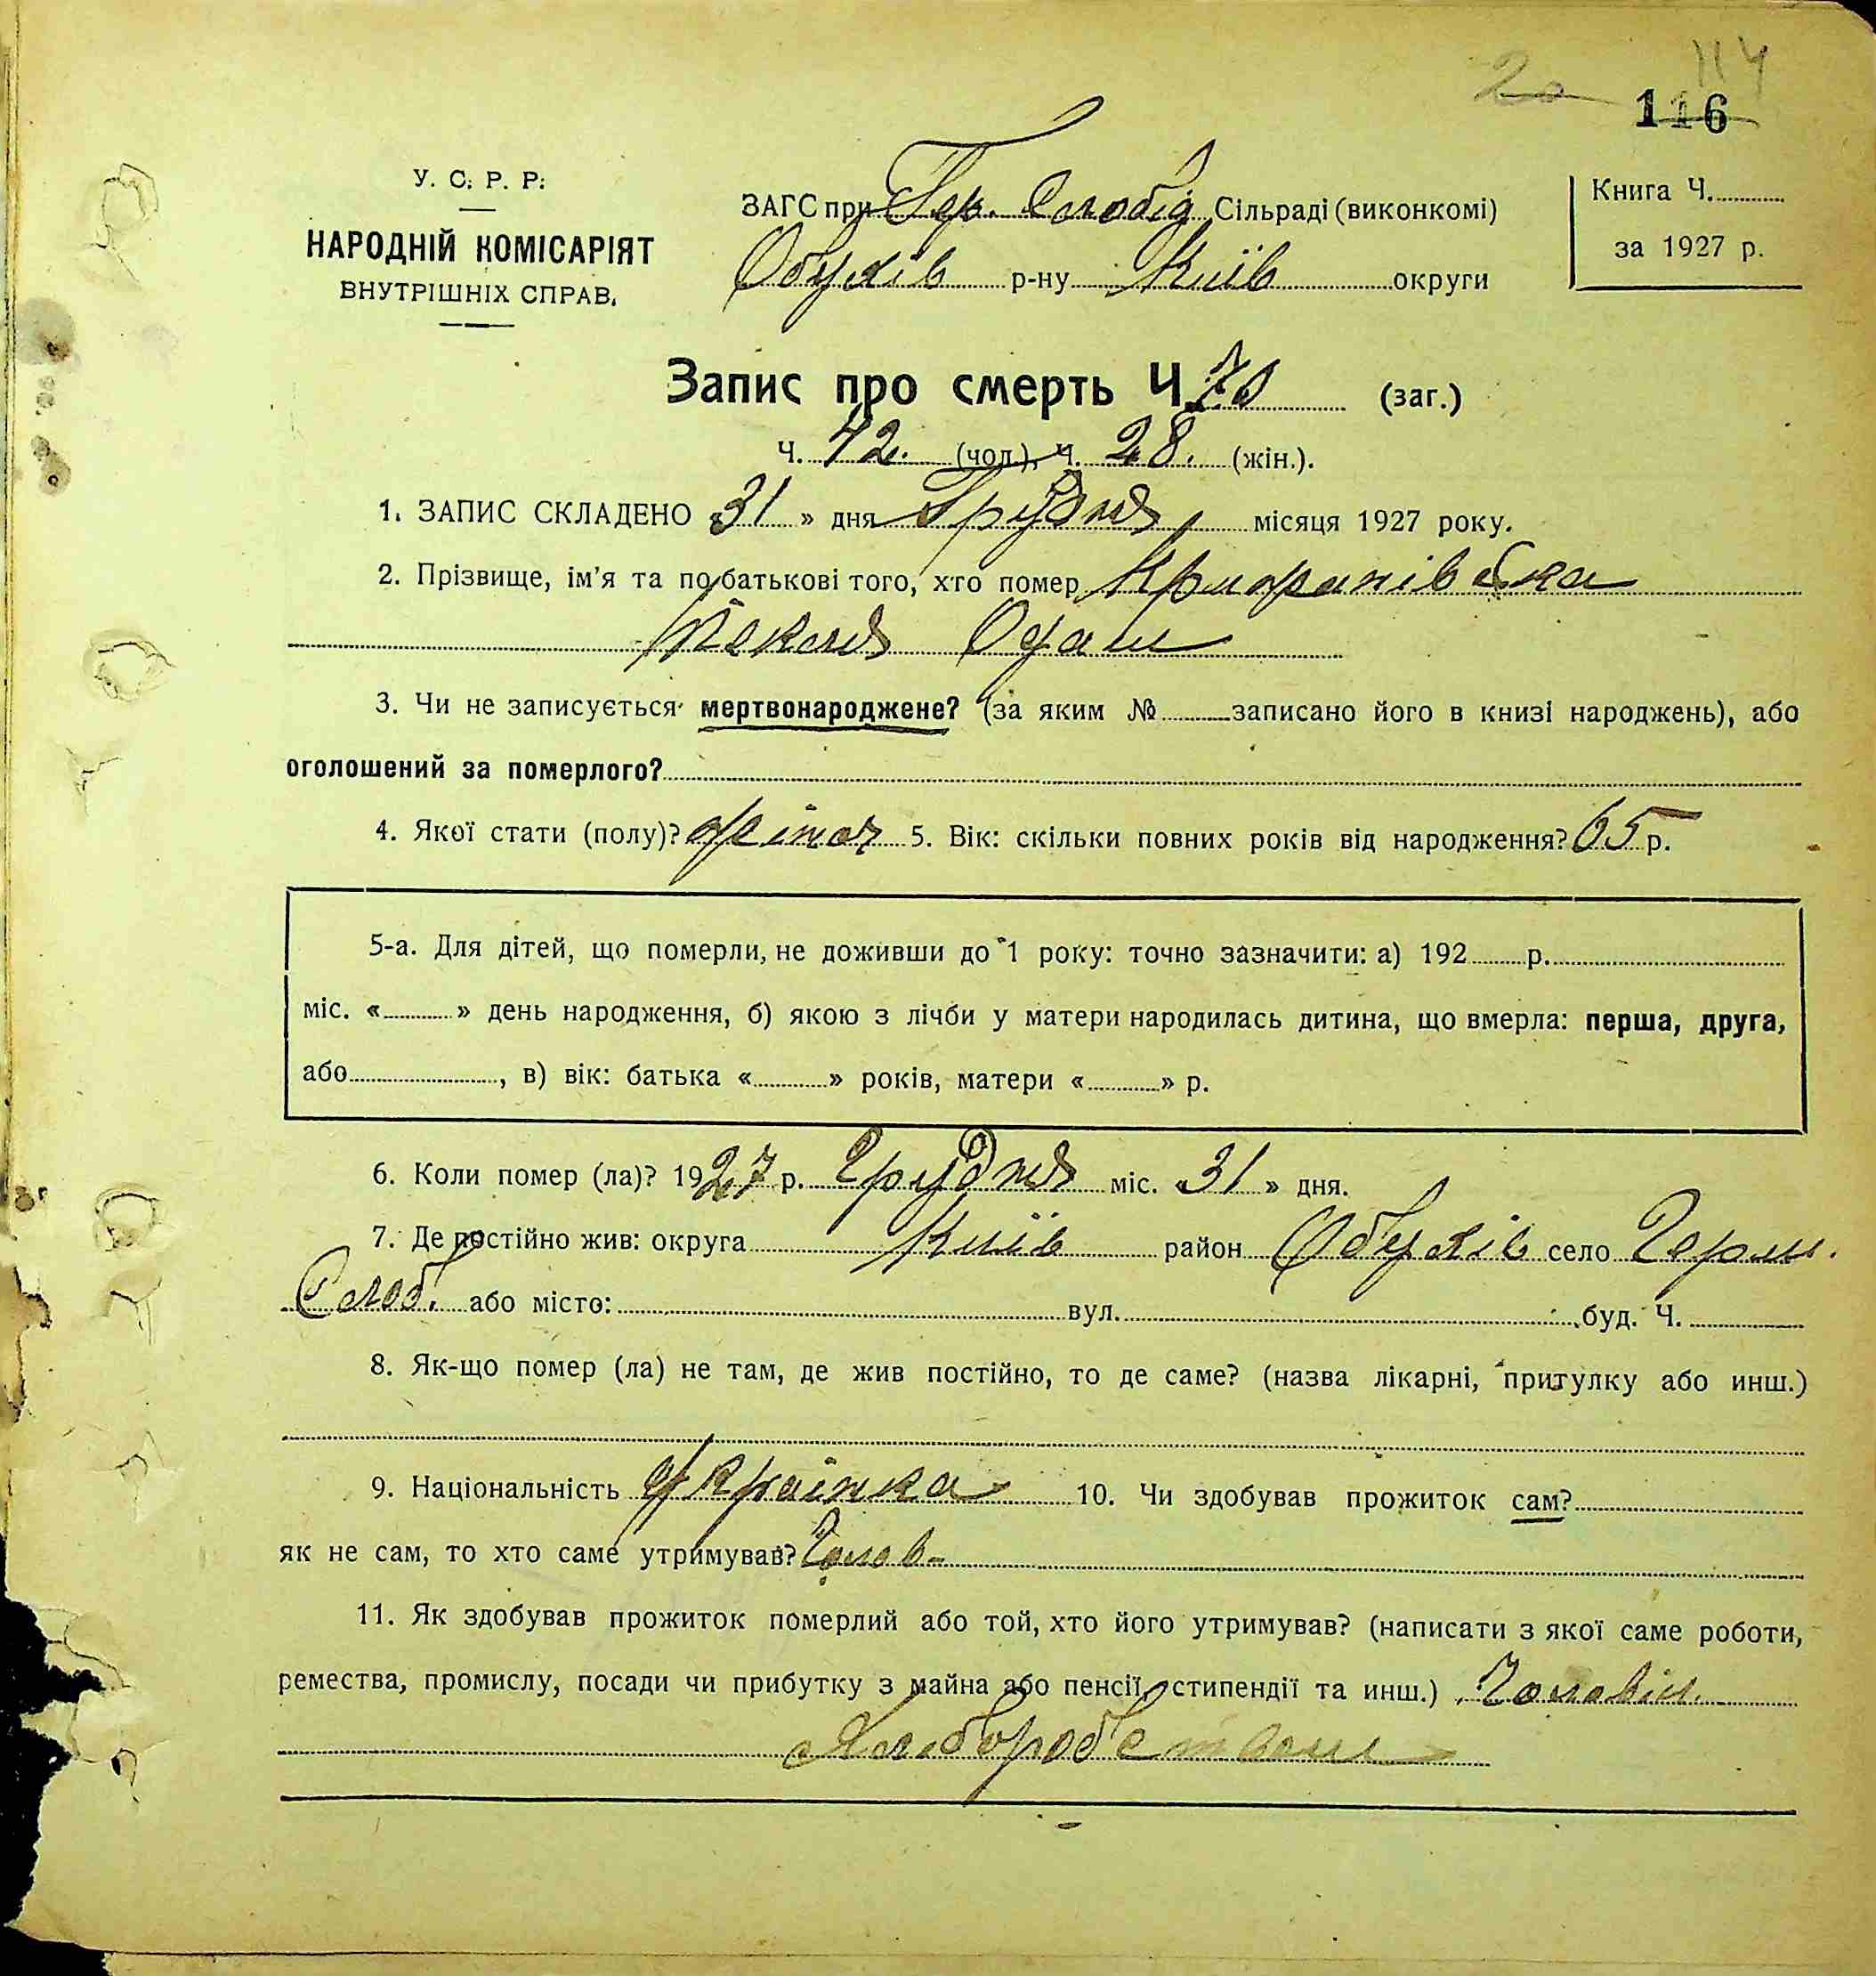 114
20
116
У. С. Р. Р.
НАРОДНІЙ КОМІСАРІЯТ
ВНУТРІШНІХ СПРАВ.
ЗАГС при Гер. Слобід Сільраді (виконкомі)
Обухів р-ну Київ округи
Книга Ч.
за 1927 р.
Запис про смерть Ч. 70 (заг.)
Ч. 42. (чол.), Ч. 28. (жін.).
1. ЗАПИС СКЛАДЕНО «31» дня Грудня місяця 1927 року.
2. Прізвище, ім'я та по батькові того, хто помер
Текля
3. Чи не записується мертвонароджене? (за яким № записано його в книзі народжень), або
оголошений за померлого?
4. Якої стати (полу)? жіноч 5. Вік: скільки повних років від народження? 65 р.
5-а. Для дітей, що померли, не доживши до 1 року: точно зазначити: а) 192 р.
міс. « » день народження, б) якою з лічби у матери народилась дитина, що вмерла: перша, друга,
або , в) вік: батька « » років, матери « » р.
6. Коли помер (ла)? 1927 р. Грудня міс. «31» дня.
7. Де постійно жив: округа Київ район Обухів село Герм.
Слоб. або місто: вул. буд. Ч.
8. Як-що помер (ла) не там, де жив постійно, то де саме? (назва лікарні, притулку або инш.)
9. Національність Українка 10. Чи здобував прожиток сам?
як не сам, то хто саме утримував? Чолов-
11. Як здобував прожиток померлий або той, хто його утримував? (написати з якої саме роботи,
ремества, промислу, посади чи прибутку з майна або пенсії, стипендії та инш.) Чоловік
Хлібороб